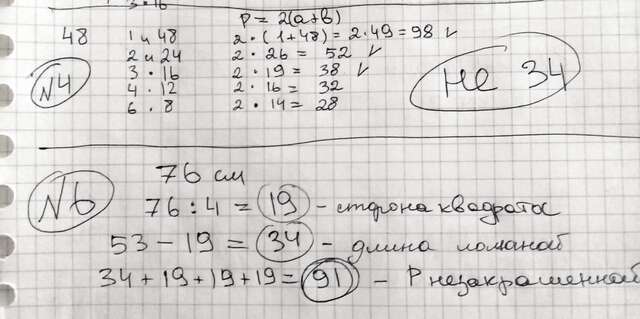 3 · 16
P = 2(a+b)
48 1 и 48 2 · (1+48) = 2 · 49 = 98 ✓
2 и 24 2 · 26 = 52 ✓
№4 3 · 16 2 · 19 = 38 ✓
4 · 12 2 · 16 = 32
6 · 8 2 · 14 = 28
Не 34
№6 76 см
76 : 4 = 19 - сторона квадрата
53 - 19 = 34 - длина ломаной
34 + 19 + 19 + 19 = 91 - P незакрашенной